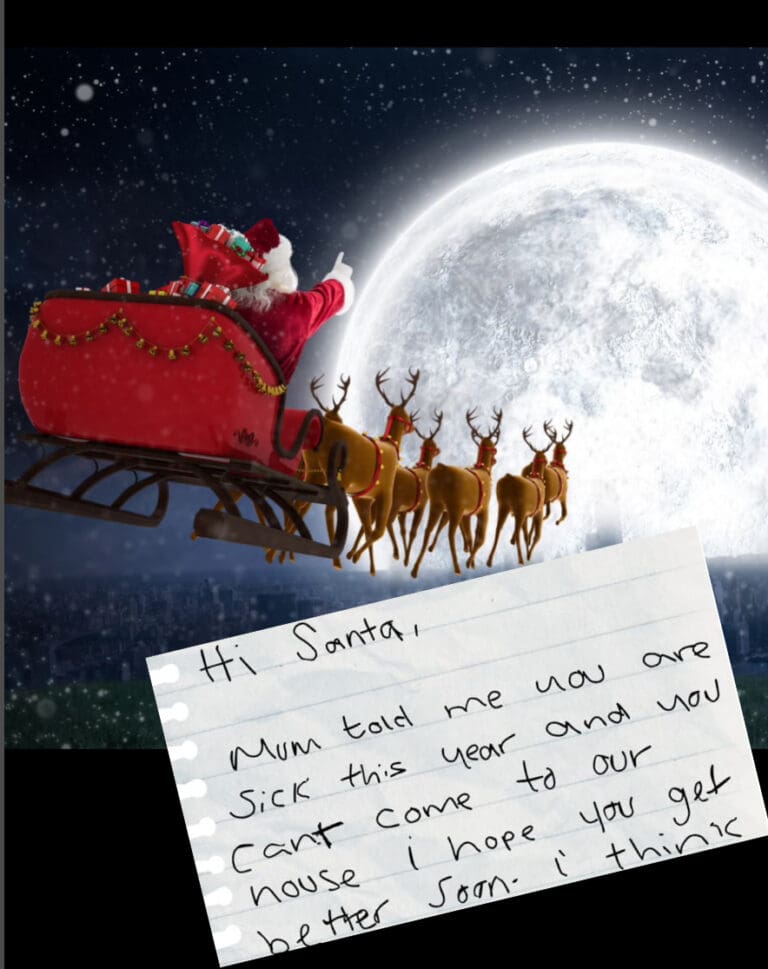 Hi Santa,
Mum told me you are
sick this year and you
cant come to our
house i hope you get
better soon. i think